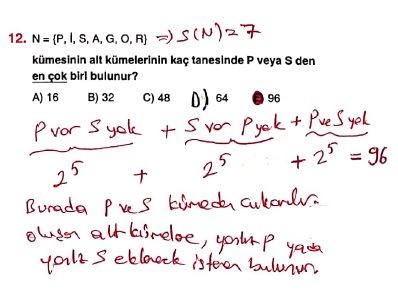 12. N = {P, İ, S, A, G, O, R} ⇒ S(N) = 7
kümesinin alt kümelerinin kaç tanesinde P veya S den
en çok biri bulunur?
A) 16 B) 32 C) 48 D) 64 E) 96
P var S yok + S var P yok + P ve S yok
2⁵ + 2⁵ + 2⁵ = 96
Burada P ve S kümeden çıkarılır.
oluşan alt kümelere, yalnız P yada
yalnız S eklenerek istenen bulunur.